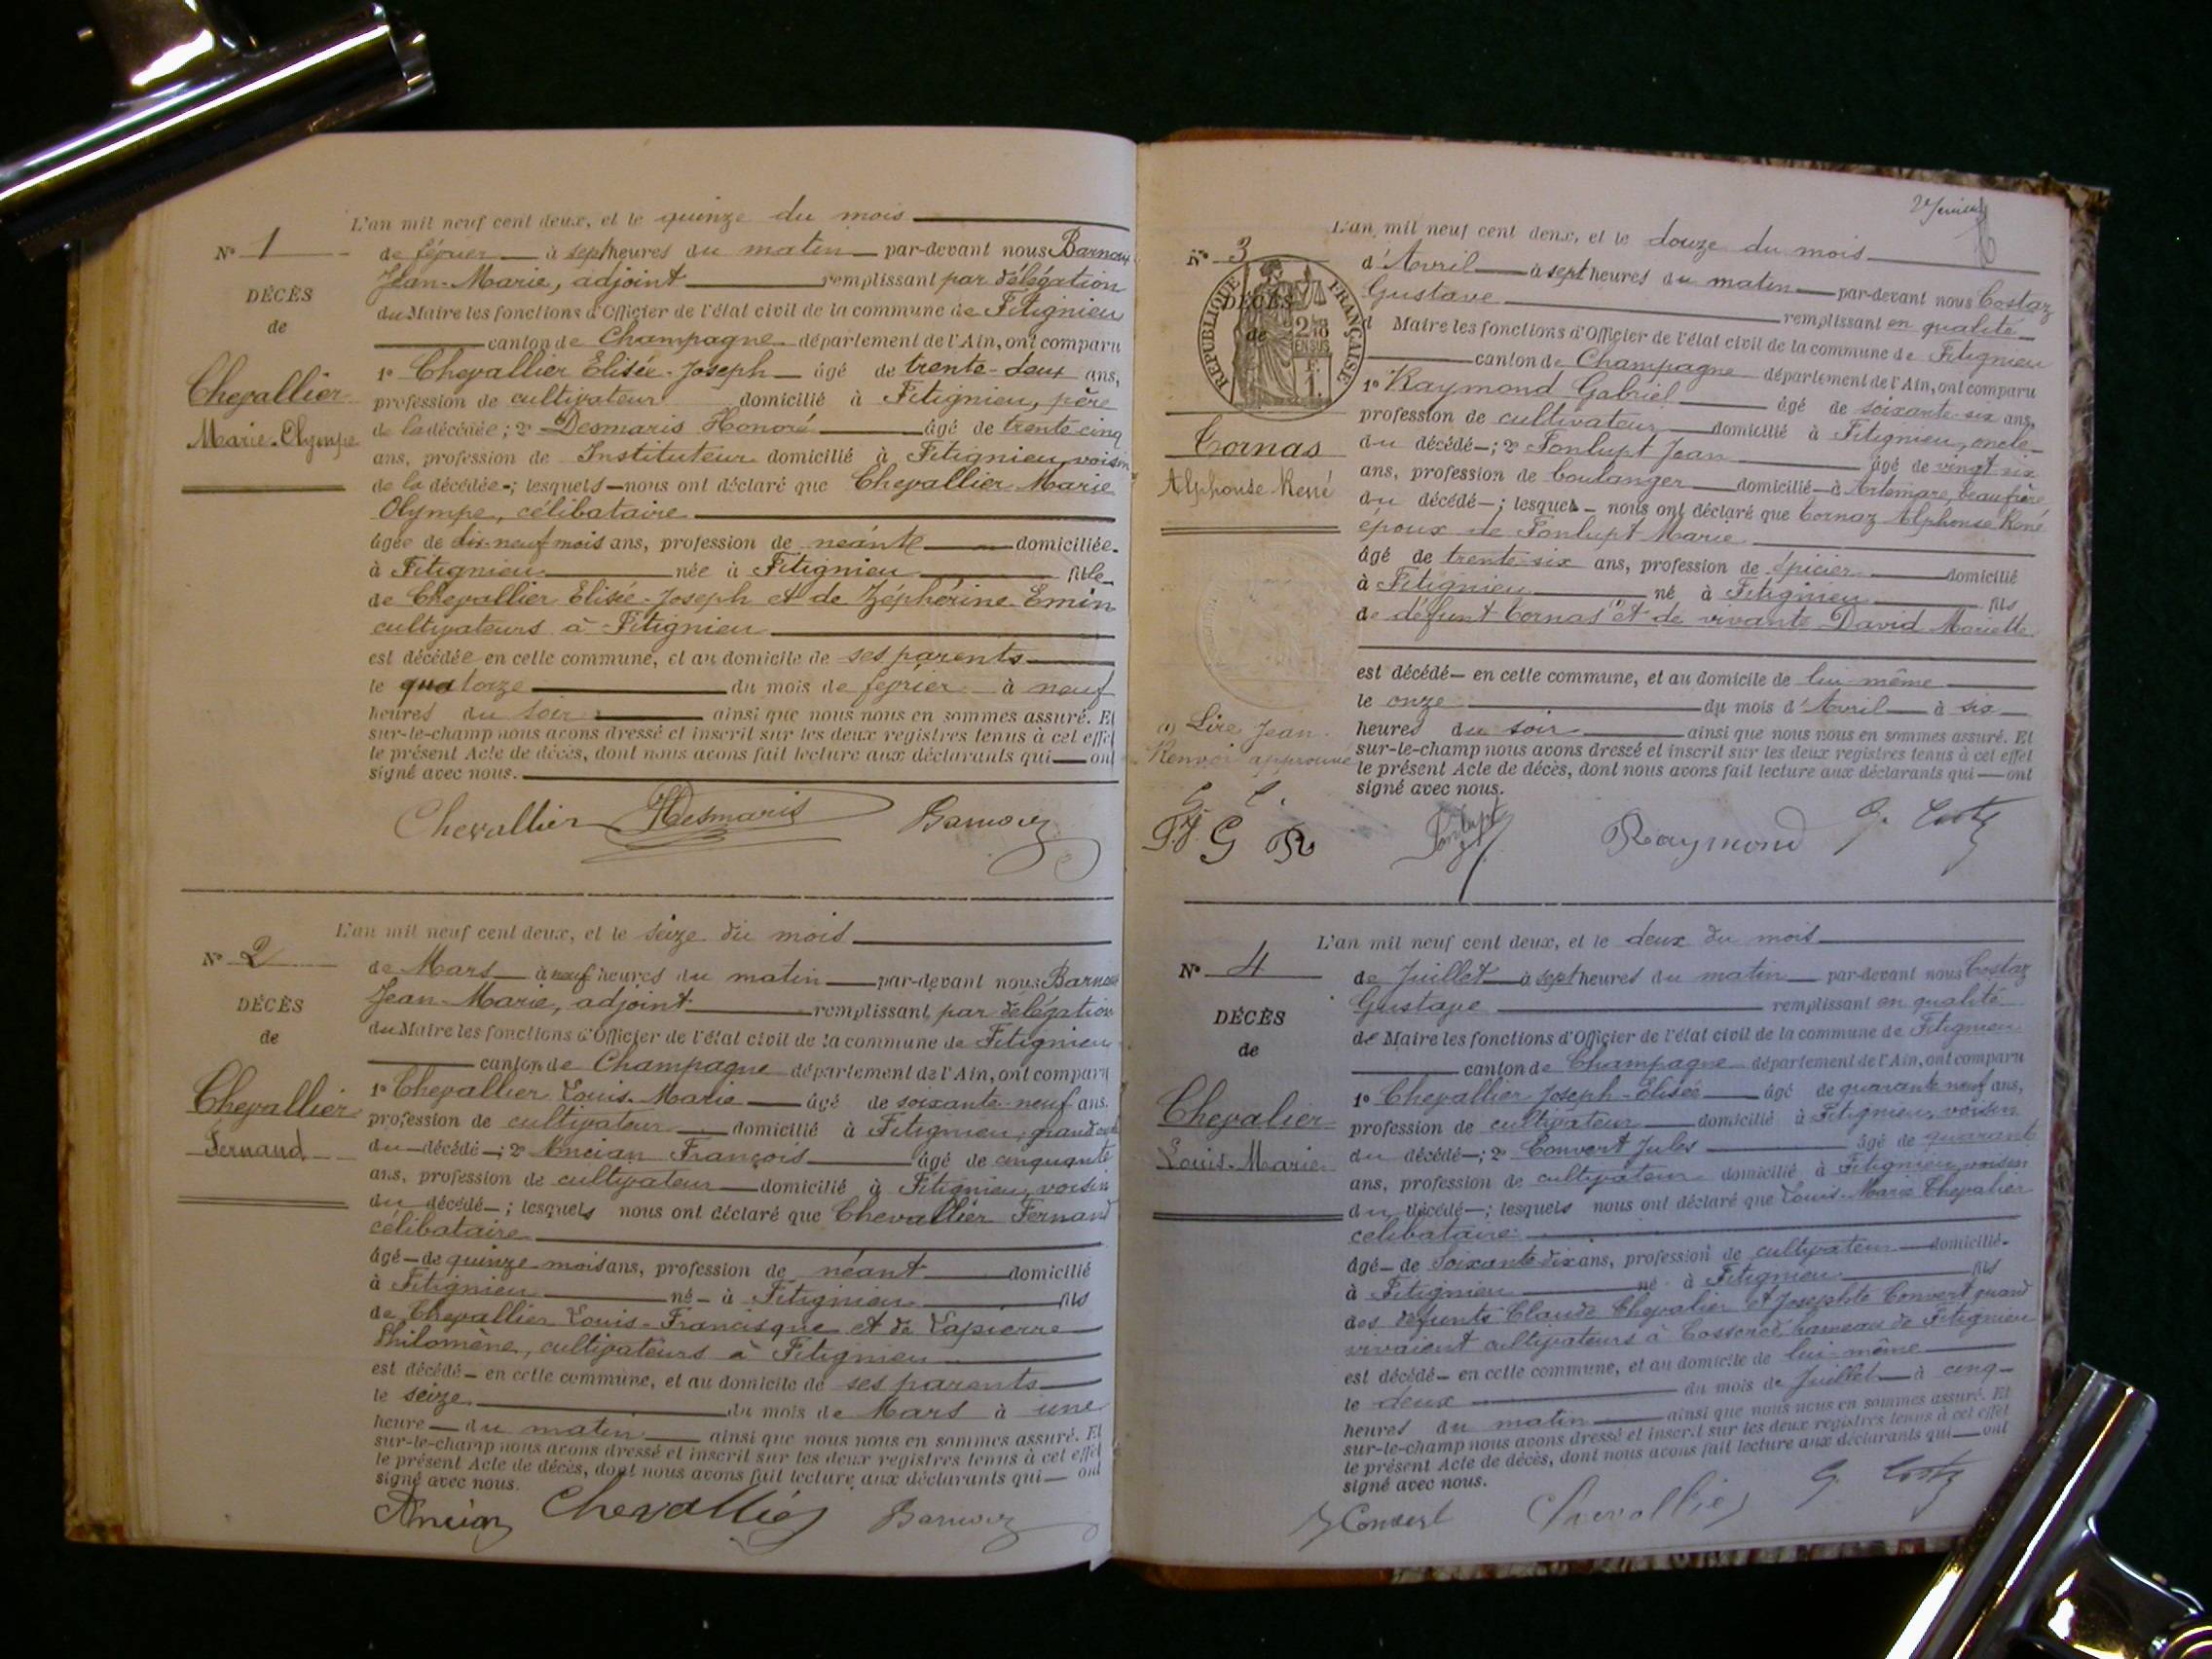 L'an mil neuf cent deux, et le quinze du mois
N° 1
de février à sept heures du matin par-devant nous Barnoux
Jean-Marie, adjoint remplissant par délégation
du Maire les fonctions d'Officier de l'état civil de la commune de Fitignieu
canton de Champagne département de l'Ain, ont comparu
DÉCÈS
de
Chevallier
Marie-Olympe
1° Chevallier Elisée-Joseph âgé de trente-deux ans,
profession de cultivateur domicilié à Fitignieu, père
de la décédée; 2° Desmaris Honoré âgé de trente cinq
ans, profession de Instituteur domicilié à Fitignieu, voisin
de la décédée; lesquels nous ont déclaré que Chevallier Marie
Olympe, célibataire
âgée de dix-neuf mois ans, profession de néante domiciliée
à Fitignieu née à Fitignieu fille
de Chevallier Elisée-Joseph et de Zéphérine Emin
cultivateurs à Fitignieu
est décédée en cette commune, et au domicile de ses parents
le quatorze du mois de février à neuf
heures du soir ainsi que nous nous en sommes assuré. Et
sur-le-champ nous avons dressé et inscrit sur les deux registres tenus à cet effet
le présent Acte de décès, dont nous avons fait lecture aux déclarants qui ont
signé avec nous.
Chevallier HDesmaris
L'an mil neuf cent deux, et le seize du mois
N° 2
de Mars à neuf heures du matin par-devant nous
Jean-Marie, adjoint remplissant par délégation
du Maire les fonctions d'Officier de l'état civil de la commune de Fitignieu
canton de Champagne département de l'Ain, ont comparu
DÉCÈS
de
Chevallier
Fernand
1° Chevallier Louis-Marie âgé de soixante-neuf ans.
profession de cultivateur domicilié à Fitignieu, grand
du décédé; 2° Ancian François âgé de cinquante
ans, profession de cultivateur domicilié à Fitignieu, voisin
du décédé; lesquels nous ont déclaré que Chevallier Fernand
célibataire
âgé de quinze mois ans, profession de néant domicilié
à Fitignieu né à Fitignieu fils
de Chevallier Louis-Francisque et de Lapierre
Philomène, cultivateurs à Fitignieu
est décédé en cette commune, et au domicile de ses parents
le seize du mois de Mars à une
heure du matin ainsi que nous nous en sommes assuré. Et
sur-le-champ nous avons dressé et inscrit sur les deux registres tenus à cet effet
le présent Acte de décès, dont nous avons fait lecture aux déclarants qui ont
signé avec nous.
Ancian Chevallier
L'an mil neuf cent deux, et le douze du mois
N° 3
d'Avril à sept heures du matin par-devant nous Costaz
Gustave remplissant en qualité
d Maire les fonctions d'Officier de l'état civil de la commune de Fitignieu
canton de Champagne département de l'Ain, ont comparu
RÉPUBLIQUE FRANÇAISE
DÉCÈS
de
Cornas
Alphonse René
1° Raymond Gabriel âgé de soixante-six ans,
profession de cultivateur domicilié à Fitignieu, oncle
du décédé; 2° Fonlupt Jean âgé de vingt six
ans, profession de boulanger domicilié à Artemare, beau frère
du décédé; lesquels nous ont déclaré que Cornaz Alphonse René
époux de Fonlupt Marie
âgé de trente-six ans, profession de épicier domicilié
à Fitignieu né à Fitignieu fils
de défunt Cornas (1) et de vivante David Mariette
est décédé en cette commune, et au domicile de lui-même
le onze du mois d'Avril à six
heures du soir ainsi que nous nous en sommes assuré. Et
sur-le-champ nous avons dressé et inscrit sur les deux registres tenus à cet effet
le présent Acte de décès, dont nous avons fait lecture aux déclarants qui ont
signé avec nous.
(1) Lire Jean
Renvoi approuvé
Fonlupt Raymond
L'an mil neuf cent deux, et le deux du mois
N° 4
de Juillet à sept heures du matin par-devant nous Costaz
Gustave remplissant en qualité
de Maire les fonctions d'Officier de l'état civil de la commune de Fitignieu
canton de Champagne département de l'Ain, ont comparu
DÉCÈS
de
Chevalier
Louis-Marie
1° Chevallier Joseph-Elisée âgé de quarante neuf ans,
profession de cultivateur domicilié à Fitignieu, voisin
du décédé; 2° Convert Jules âgé de quarante
ans, profession de cultivateur domicilié à Fitignieu, voisin
du décédé; lesquels nous ont déclaré que Louis-Marie Chevalier
célibataire
âgé de Soixante-dix ans, profession de cultivateur domicilié
à Fitignieu né à Fitignieu fils
des défunts Claude Chevalier et Josephte Convert quand
vivaient cultivateurs à hameau de Fitignieu
est décédé en cette commune, et au domicile de lui-même
le deux du mois de Juillet à cinq
heures du matin ainsi que nous nous en sommes assuré. Et
sur-le-champ nous avons dressé et inscrit sur les deux registres tenus à cet effet
le présent Acte de décès, dont nous avons fait lecture aux déclarants qui ont
signé avec nous.
J Convert Chevallier